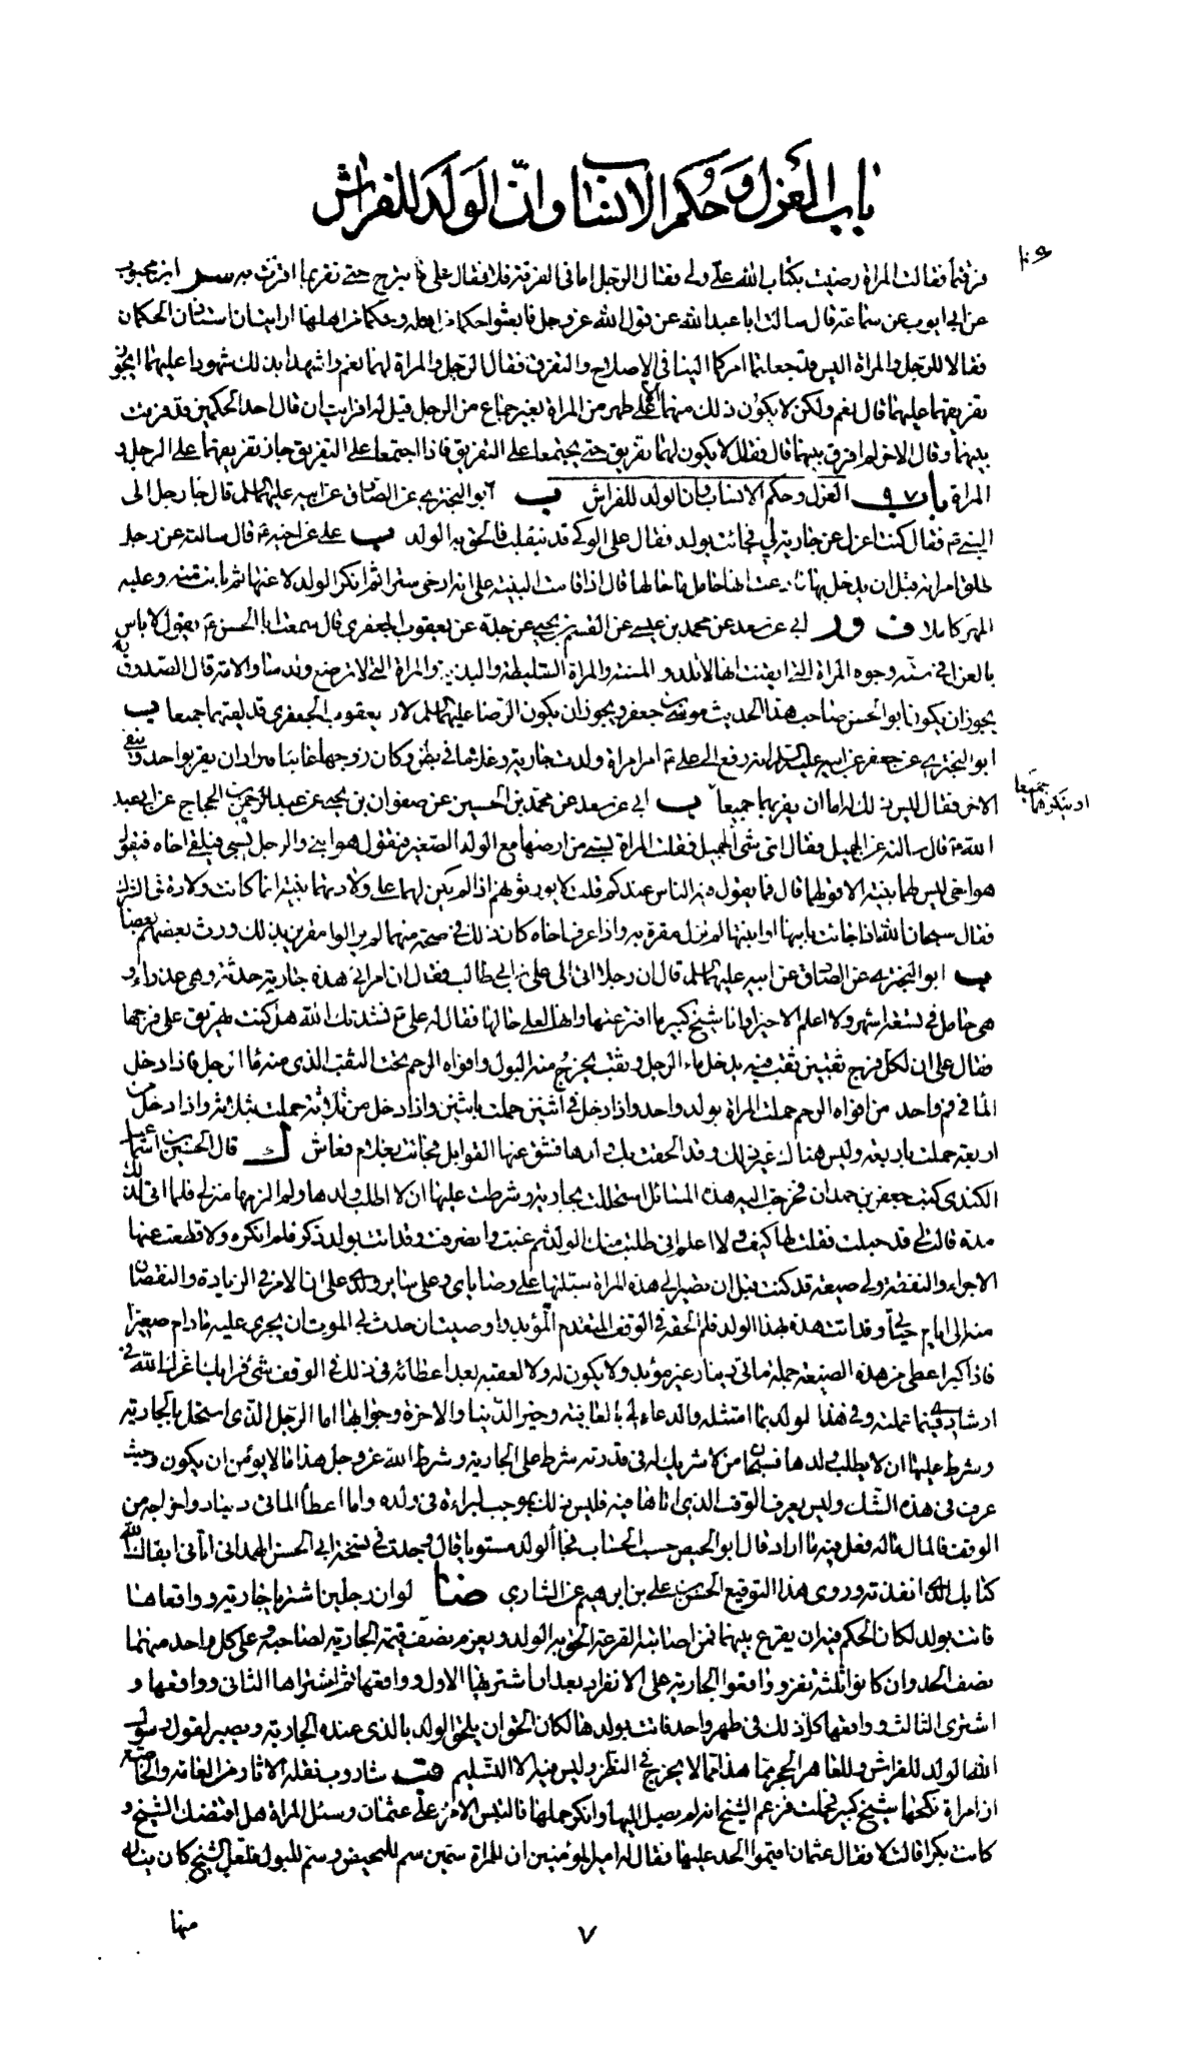 باب العزل وحكم الانساب وانّ الولد للفراش
فرقتما فقالت المراة رضيت بكتاب الله علىّ ولى فقال الرجل اما فى الفرقة فلا فقال على ما تبرح حتى تقر بما اقرت به ابن محبوب
عن ابى ايوب عن سماعة قال سالت ابا عبد الله عن قول الله عز وجل فابعثوا حكما من اهله وحكما من اهلها ارايت ان استاذن الحكمان
فقالا للرجل والمراة اليس قد جعلتما امركما الينا فى الاصلاح والتفريق فقال الرجل والمراة لهما نعم واشهدا بذلك شهودا عليهما ايجوز
تفريقهما عليهما قال نعم ولكن لا يكون ذلك منهما الا على طهر من المراة بغير جماع من الرجل قيل له افرايت ان قال احد الحكمين قد فرقت
بينهما وقال الاخر لم افرق بينهما قال فقال لا يكون لهما تفريق حتى يجتمعا على التفريق فاذا اجتمعا على التفريق جاز تفريقهما على الرجل و
المراة باب ٩٧ العزل وحكم الانساب وان الولد للفراش ب ابو البخترى عن الصادق عن ابيه عليهما السلم قال جا رجل الى
النبى ص فقال كنت اعزل عن جارية لى فجائت بولد فقال على الوكاء قد ينفلت فالحق به الولد ب على عن اخيه ع قال سالته عن رجل
طلق امراته قبل ان يدخل بها فادعت انها حامل ما حالها قال اذا قامت البينة على انه ارخى سترا ثم انكر الولد لاعنها ثم بانت منه وعليه
المهر كاملا ابى عن سعد عن محمد بن عيسى عن القسم بن يحيى عن جده عن يعقوب الجعفرى قال سمعت ابا الحسن ع يقول لا باس
بالعزل فى ستة وجوه المراة التى ايقنت انها لا تلد و المسنة والمراة السليطة والبذية والمراة التى لا ترضع ولدها والامة قال الصدوق
يجوز ان يكون ابو الحسن صاحب هذا الحديث موسى بن جعفر ويجوز ان يكون الرضا عليهما السلم لان يعقوب الجعفرى قد لقيهما جميعا ب
ابو البخترى عن جعفر عن ابيه عليه السلم انه رفع الى على ع امر امراة ولدت جارية وغلاما فى بطن وكان زوجها غائبا فاراد ان يقر بواحد وينفى
الاخر فقال ليس ذلك له اما ان يقر بهما جميعا ب ابى عن سعد عن محمد بن الحسين عن صفوان بن يحيى عن عبد الرحمن بن الحجاج عن ابى عبد
او ينكرهما جميعا
الله ع قال سالته عن الحميل فقال اى شئ الحميل فقلت المراة تسبى من ارضها مع الولد الصغير فتقول هو ابنى والرجل يسبى فيلقى اخاه فيقول
هو اخى ليس لهما بينة الا قولهما قال فما يقول فيه الناس عندكم قلت لا يورثونهم اذا لم يكن لهما على ولادتهما بينة انما كانت ولادة فى الشرك
فقال سبحان الله اذا جائت بابنها او ابنتها لم تزل مقرة به واذا عرف اخاه كان ذلك فى صحة منهما لم يزالوا مقرين بذلك ورث بعضهم بعضا
ب ابو البخترى عن الصادق عن ابيه عليهما السلم قال ان رجلا اتى الى على بن ابى طالب فقال ان امراتى هذه جارية حدثة وهى عذراء و
هى حامل فى تسعة اشهر ولا اعلم الا خيرا وانا شيخ كبير ما افترعتها وانها لعلى حالها فقال له على ع نشدتك الله هل كنت تهريق على فرجها
فقال على ان لكل فرج ثقبين ثقب فيه يدخل ماء الرجل وثقب يخرج منه البول وافواه الرحم تحت الثقب الذى منه ماء الرجل فاذا دخل
الما فى فم واحد من افواه الرحم حملت المراة بولد واحد واذا دخل فى اثنين حملت باثنين واذا دخل من ثلاثة حملت بثلاثة واذا دخل من
اربعة حملت باربعة وليس هناك غير ذلك وقد الحقت بك ولدها فشق عنها القوابل فجائت بغلام فعاش ك قال الحسين بن اسماعيل
الكندى كتب جعفر بن حمدان فخرجت اليه هذه المسائل استحللت بجارية وشرطت عليها ان لا اطلب ولدها ولم الزمها منزلى فلما اتى لذلك
مدة قالت لى قد حبلت فقلت لها كيف ولا اعلم انى طلبت منك الولد ثم غبت وانصرفت وقد اتت بولد ذكر فلم انكره ولا قطعت عنها
الاجراء والنفقة ولى ضيعة قد كنت قبل ان تصير الى هذه المراة سبلتها على وصاياى وعلى سائر ولدى على ان الامر فى الزيادة والنقصان
منه الى ايام حياتى وقد اتت هذه بهذا الولد فلم الحقه فى الوقف المتقدم المؤبد واوصيت ان حدث بى الموت ان يجرى عليه ما دام صغيرا
فاذا كبر اعطى من هذه الضيعة جملة مائتى دينار غير مؤبد ولا يكون له ولا لعقبه بعد اعطائه فى ذلك فى الوقف شئ فرايك اعزك الله فى
ارشادى فيما عملته وفى هذا الولد بما امتثله والدعاء لى بالعافية وخير الدنيا والاخرة وجوابها اما الرجل الذى استحل بالجارية
وشرط عليها ان لا يطلب ولدها فسبحان من لا شريك له فى قدرته شرط على الجارية وشرط الله عز وجل هذا ما لا يؤمن ان يكون وحيث
عرف فى هذه الشك وليس يعرف الوقت الذى اتاها فيه فليس ذلك بموجب لبراءة فى ولده واما اعطا المائتى دينار واخراجه من
الوقف فالمال ماله فعل فيه ما اراد قال ابو الحسين حسب الحساب فجا الولد مستويا وقال وجدت فى نسخة ابى الحسن الهمدانى اتانى ابقاك الله
كتابك الذى انفذته وروى هذا التوقيع الحسن بن على بن ابرهيم عن الشارى ضا لو ان رجلين اشتريا جارية وواقعاها
فاتت بولد لكان الحكم فيه ان يقرع بينهما فمن اصابته القرعة الحق به الولد ويغرم نصف قيمة الجارية لصاحبه وعلى كل واحد منهما
نصف الحد وان كانوا ثلثة نفر وواقعوا الجارية على الانفراد بعد ان اشتريها الاول وواقعها ثم اشتراها الثانى وواقعها و
اشترى الثالث وواقعها كل ذلك فى طهر واحد فاتت بولدها لكان الحق ان يلحق الولد بالذى عنده الجارية ويصير لقول رسول
الله الولد للفراش وللعاهر الحجر هذا مما لا يخرج فى النظر وليس فيه الا التسليم شا روت نقلة الاثار من العامة والخاصة
ان امراة نكحها شيخ كبير فحملت فزعم الشيخ انه لم يصل اليها وانكر حملها فالتبس الامر على عثمان وسئل المراة هل افتضك الشيخ و
كانت بكرا قالت لا فقال عثمان اقيموا الحد عليها فقال له امير المؤمنين ان للمراة سمين سم للمحيض وسم للبول فلعل الشيخ كان ينال
منها
٧